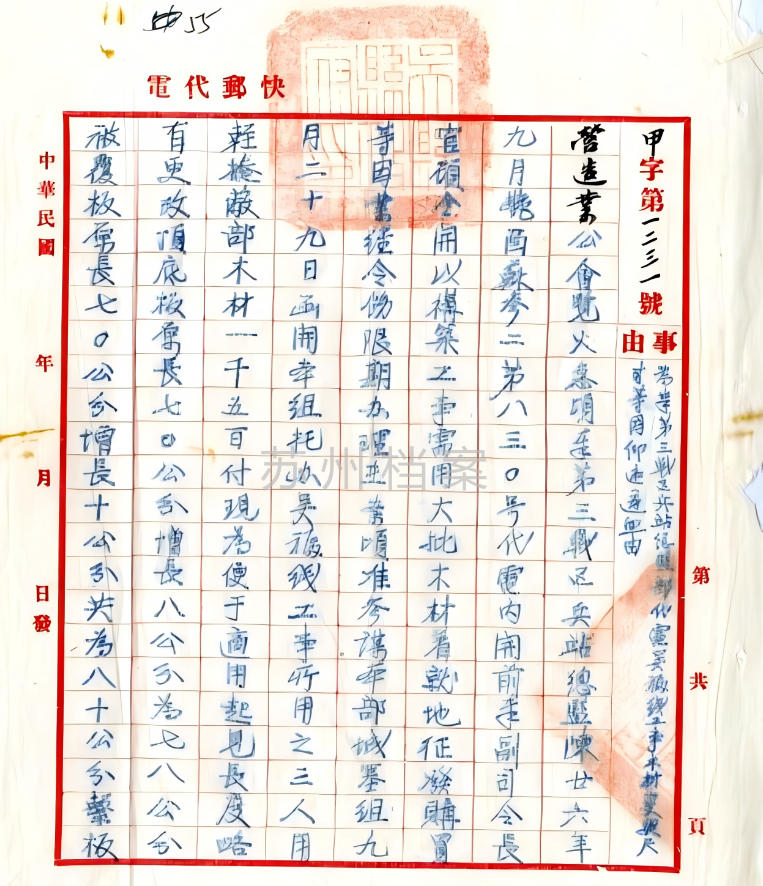 申55
快郵代電
甲字第一二三一號
事由
為奉第三戰區兵站總監部代電吳福線工事木材
等因仰迅遵照由
營造業公會覽火急頃奉第三戰區兵站總監陳廿六年
九月艷酉蘇參二第八三〇号代電內開前奉副司令長
官顧令開以構築工事需用大批木材着就地征發購買
等因業經令飭限期办理在案頃准參謀本部城塞組九
月二十九日函開本組托办吳福线工事所用之三人用
輕掩蔽部木材一千五百付現為便于適用起見長度略
有更改頂底板原長七〇公分增長八公分為七八公分
被覆板原長七〇公分增長十公分共為八十公分繫板
中華民國 年 月 日發
第 共 頁
苏州档案